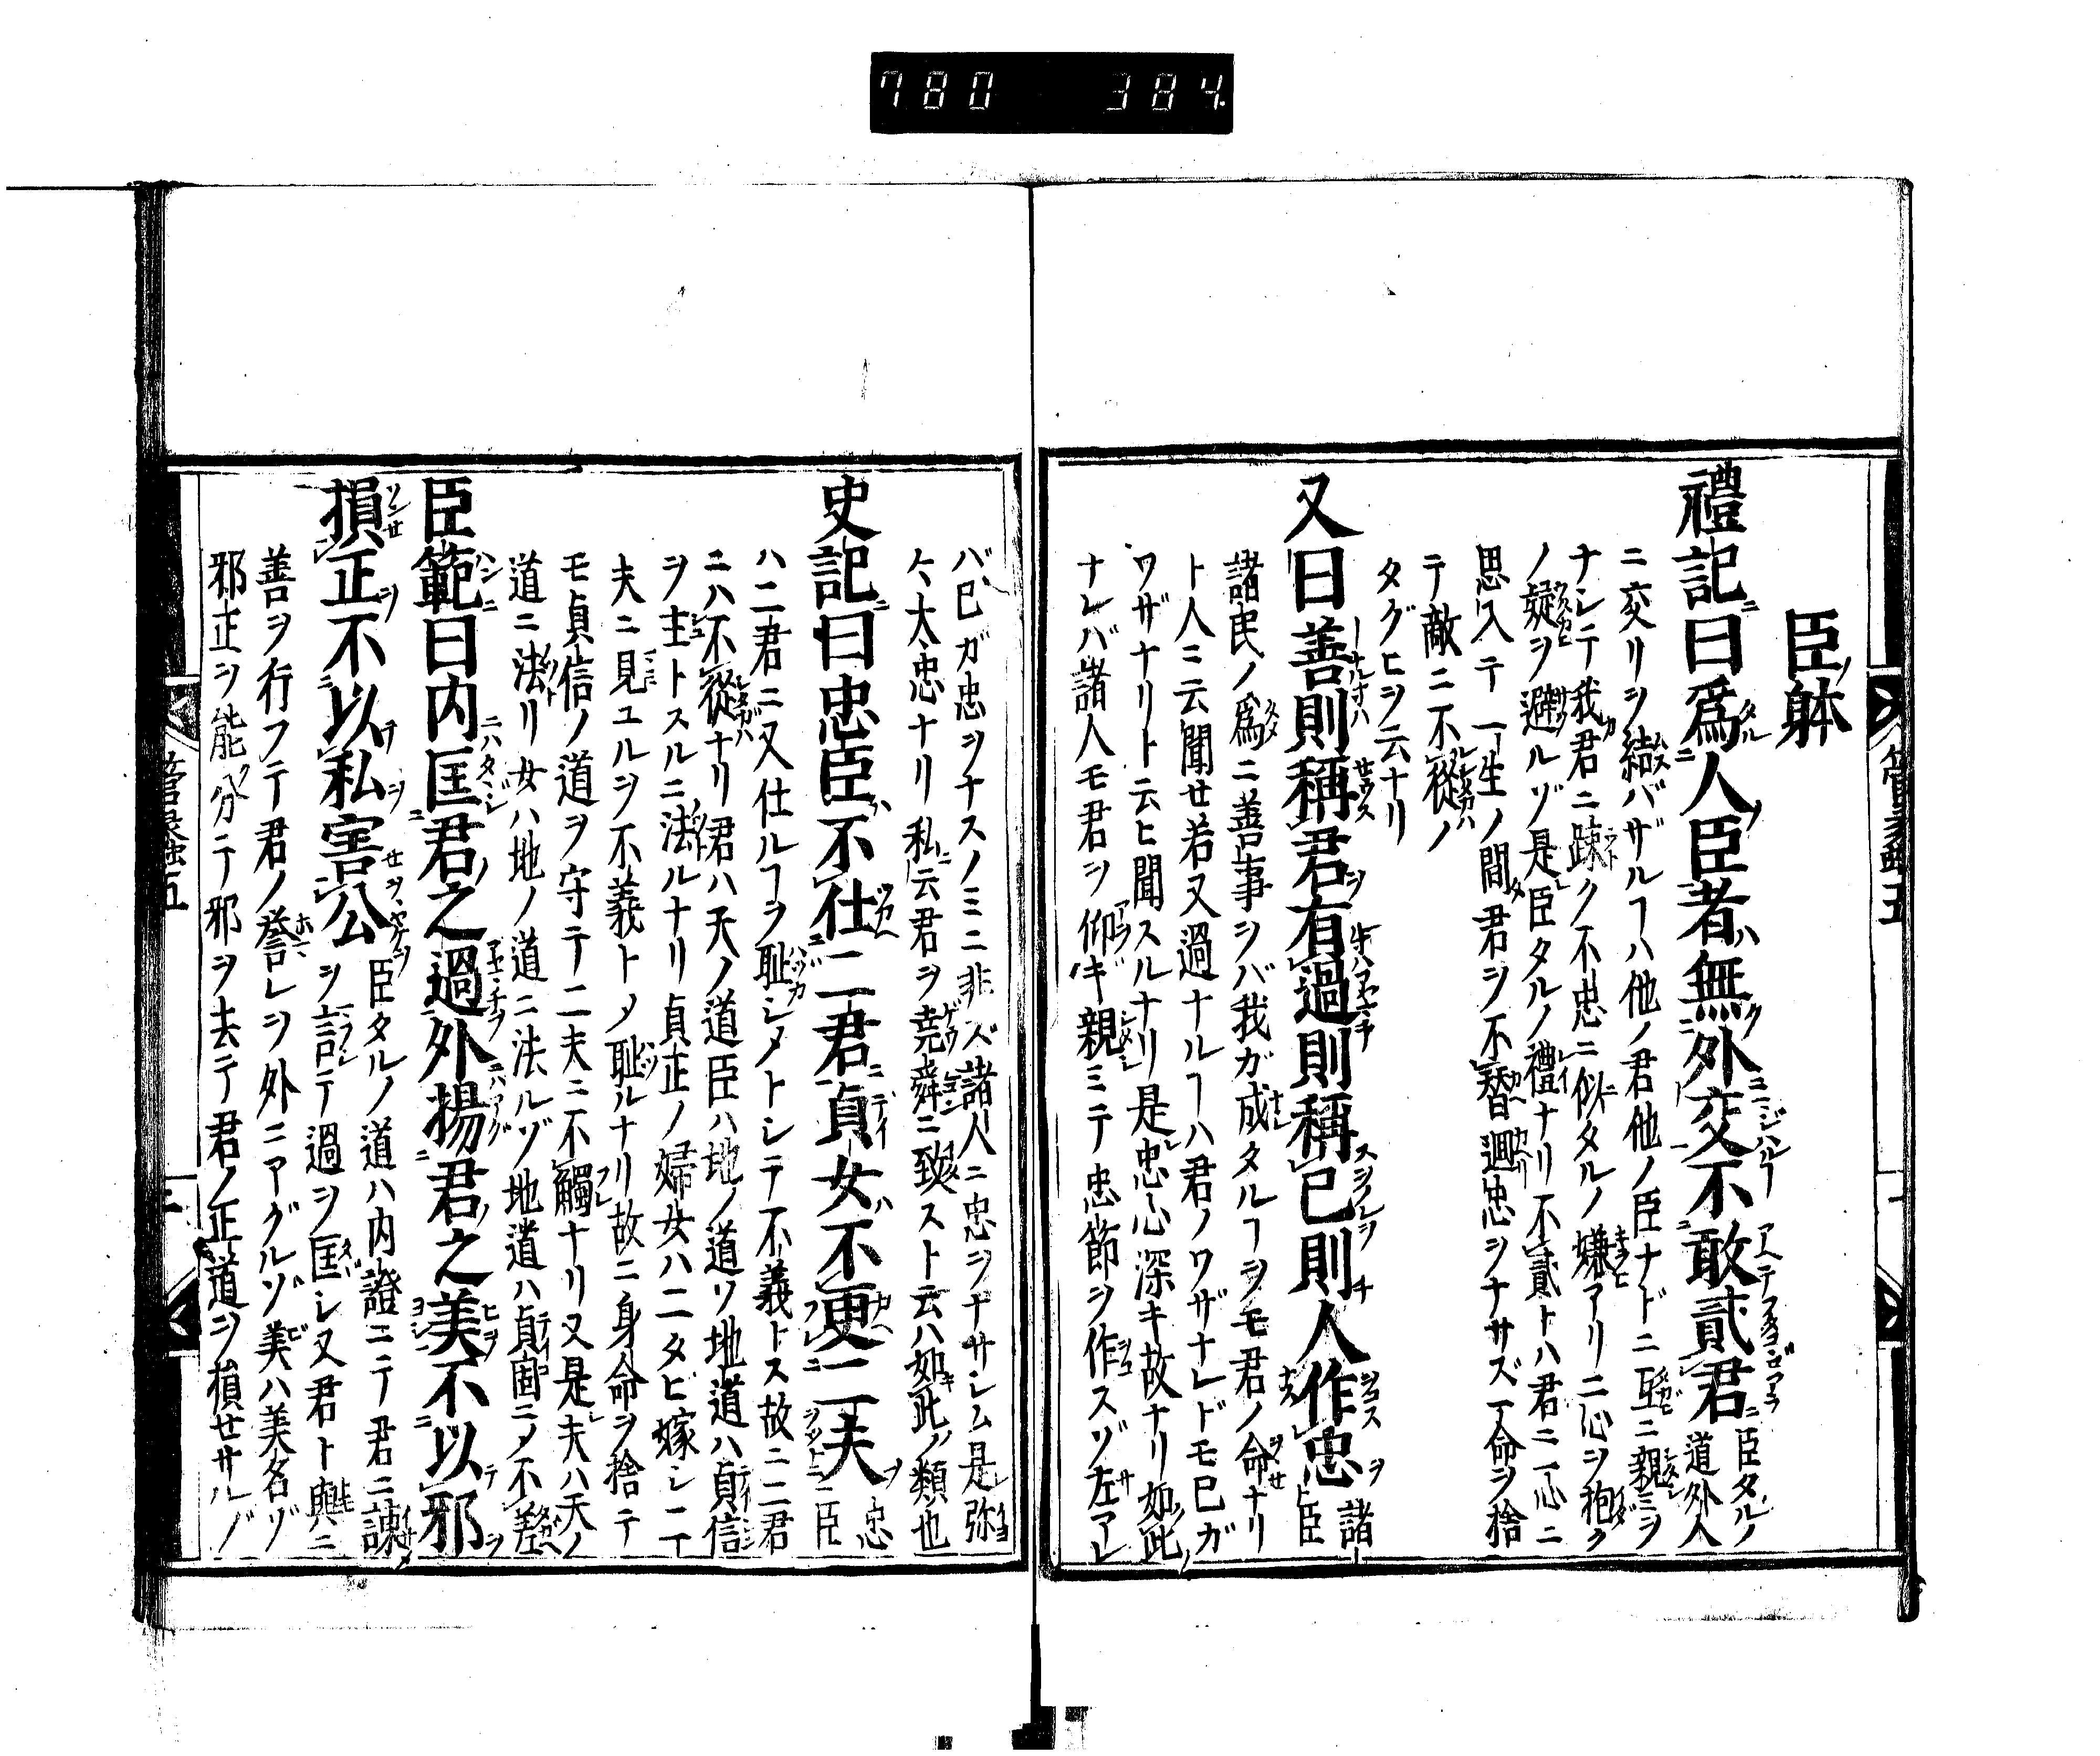 臣躰
禮記曰爲人臣者無外交不敢貳君 臣タルノ道外人
ニ交リヲ結バザルヿハ他ノ君他ノ臣ナドニ互ニ親ミヲ
ナシテ我君ニ踈ク不忠ニ似タルノ嫌アリ二心ヲ抱ク
ノ疑ヲ避ルゾ是臣タルノ禮ナリ不貳トハ君ニ一心ニ
思入テ一生ノ間君ヲ不替廻忠ヲナサズ一命ヲ捨
テ敵ニ不從ノ
タグヒヲ云ナリ
又曰善則稱君有過則稱已則人作忠 諸臣ト
諸民ノ爲ニ善事ヲバ我ガ成タルヿヲモ君ノ命ナリ
ト人ニ云聞せ若又過ナルヿハ君ノワザナレドモ已ガ
ワザナリト云ヒ聞スルナリ是忠心深キ故ナリ如此
ナレバ諸人モ君ヲ仰ギ親ミテ忠節ヲ作スゾ左アレ
バ已ガ忠ヲナスノミニ非ズ諸人ニ忠ヲナサシム是弥
大忠ナリ私云君ヲ堯舜ニ致スト云ハ如此ノ類也
史記曰忠臣不仕二君貞女不更二夫 忠臣
ハ二君ニ又仕ルヿヲ耻シメトシテ不義トス故ニ二君
ニハ不從ナリ君ハ天ノ道臣ハ地ノ道ソ地道ハ貞信
ヲ主トスルニ法ルナリ貞正ノ婦女ハ二タビ嫁シニテ
夫ニ見ユルヲ不義トメ耻ルナリ故ニ身命ヲ捨テ
モ貞信ノ道ヲ守テ二夫ニ不觸ナリ又是夫ハ天ノ
道ニ法リ女ハ地ノ道ニ法ルゾ地道ハ貞固ニメ不差
臣範曰内匡君之過外揚君之美不以邪
損正不以私害公 臣タルノ道ハ内證ニテ君ニ諫
ヲ言テ過ヲ匡シ又君ト與ニ
善ヲ行フテ君ノ誉レヲ外ニアグルゾ美ハ美名ゾ
邪正ヲ能分テ邪ヲ去テ君ノ正道ヲ損せサルゾ